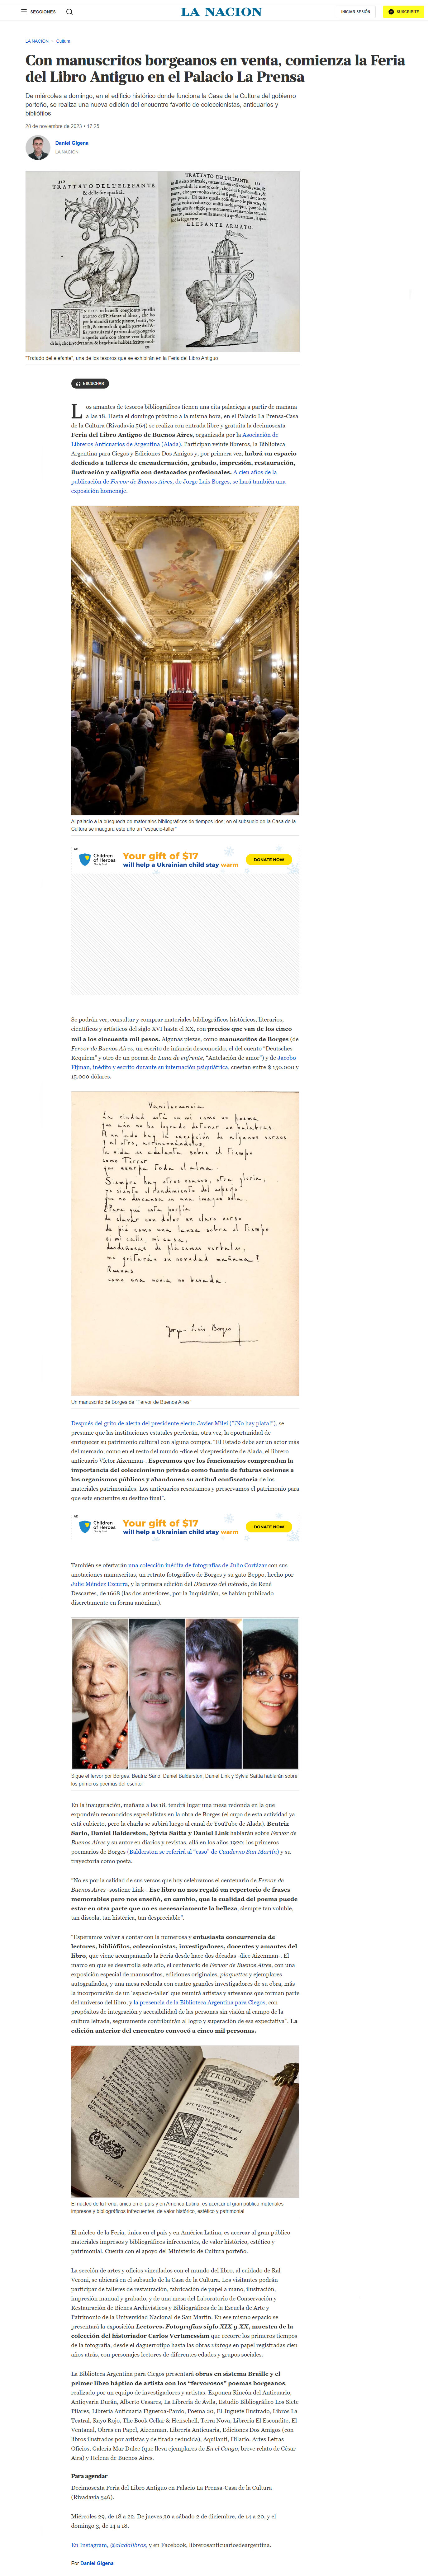 SECCIONES
LA NACION
INICIAR SESIÓN
SUSCRIBITE
LA NACION > Cultura
Con manuscritos borgeanos en venta, comienza la Feria
del Libro Antiguo en el Palacio La Prensa
De miércoles a domingo, en el edificio histórico donde funciona la Casa de la Cultura del gobierno
porteño, se realiza una nueva edición del encuentro favorito de coleccionistas, anticuarios y
bibliófilos
28 de noviembre de 2023 • 17:25
Daniel Gigena
LA NACION
TRATTATO DELL'ELEFANTE
TRATTATO DELL'ELEFANTE
ELEFANTE ARMATO.
"Tratado del elefante", una de los tesoros que se exhibirán en la Feria del Libro Antiguo
ESCUCHAR
Los amantes de tesoros bibliográficos tienen una cita palaciega a partir de mañana
a las 18. Hasta el domingo próximo a la misma hora, en el Palacio La Prensa-Casa
de la Cultura (Rivadavia 564) se realiza con entrada libre y gratuita la decimosexta
Feria del Libro Antiguo de Buenos Aires, organizada por la Asociación de
Libreros Anticuarios de Argentina (Alada). Participan veinte libreros, la Biblioteca
Argentina para Ciegos y Ediciones Dos Amigos y, por primera vez, habrá un espacio
dedicado a talleres de encuadernación, grabado, impresión, restauración,
ilustración y caligrafía con destacados profesionales. A cien años de la
publicación de Fervor de Buenos Aires, de Jorge Luis Borges, se hará también una
exposición homenaje.
Al palacio a la búsqueda de materiales bibliográficos de tiempos idos; en el subsuelo de la Casa de la
Cultura se inaugura este año un "espacio-taller"
Ad
Children of Heroes
Your gift of $17
will help a Ukrainian child stay warm
DONATE NOW
Se podrán ver, consultar y comprar materiales bibliográficos históricos, literarios,
científicos y artísticos del siglo XVI hasta el XX, con precios que van de los cinco
mil a los cincuenta mil pesos. Algunas piezas, como manuscritos de Borges (de
Fervor de Buenos Aires, un escrito de infancia desconocido, el del cuento "Deutsches
Requiem" y otro de un poema de Luna de enfrente, "Antelación de amor") y de Jacobo
Fijman, inédito y escrito durante su internación psiquiátrica, cuestan entre $ 150.000 y
15.000 dólares.
Vanilocuencia
La ciudad está en mí como un poema
que aún no he logrado detener en palabras.
Jorge-Luis Borges
Un manuscrito de Borges de "Fervor de Buenos Aires"
Después del grito de alerta del presidente electo Javier Milei ("¡No hay plata!"), se
presume que las instituciones estatales perderán, otra vez, la oportunidad de
enriquecer su patrimonio cultural con alguna compra. "El Estado debe ser un actor más
del mercado, como en el resto del mundo -dice el vicepresidente de Alada, el librero
anticuario Víctor Aizenman-. Esperamos que los funcionarios comprendan la
importancia del coleccionismo privado como fuente de futuras cesiones a
los organismos públicos y abandonen su actitud confiscatoria de los
materiales patrimoniales. Los anticuarios rescatamos y preservamos el patrimonio para
que este encuentre su destino final".
Ad
Children of Heroes
Your gift of $17
will help a Ukrainian child stay warm
DONATE NOW
También se ofertarán una colección inédita de fotografías de Julio Cortázar con sus
anotaciones manuscritas, un retrato fotográfico de Borges y su gato Beppo, hecho por
Julie Méndez Ezcurra, y la primera edición del Discurso del método, de René
Descartes, de 1668 (las dos anteriores, por la Inquisición, se habían publicado
discretamente en forma anónima).
Sigue el fervor por Borges: Beatriz Sarlo, Daniel Balderston, Daniel Link y Sylvia Saítta hablarán sobre
los primeros poemas del escritor
En la inauguración, mañana a las 18, tendrá lugar una mesa redonda en la que
expondrán reconocidos especialistas en la obra de Borges (el cupo de esta actividad ya
está cubierto, pero la charla se subirá luego al canal de YouTube de Alada). Beatriz
Sarlo, Daniel Balderston, Sylvia Saítta y Daniel Link hablarán sobre Fervor de
Buenos Aires y su autor en diarios y revistas, allá en los años 1920; los primeros
poemarios de Borges (Balderston se referirá al "caso" de Cuaderno San Martín) y su
trayectoria como poeta.
"No es por la calidad de sus versos que hoy celebramos el centenario de Fervor de
Buenos Aires -sostiene Link-. Ese libro no nos regaló un repertorio de frases
memorables pero nos enseñó, en cambio, que la cualidad del poema puede
estar en otra parte que no es necesariamente la belleza, siempre tan voluble,
tan díscola, tan histérica, tan despreciable".
"Esperamos volver a contar con la numerosa y entusiasta concurrencia de
lectores, bibliófilos, coleccionistas, investigadores, docentes y amantes del
libro, que viene acompañando la Feria desde hace dos décadas -dice Aizenman-. El
marco en que se desarrolla este año, el centenario de Fervor de Buenos Aires, con una
exposición especial de manuscritos, ediciones originales, plaquettes y ejemplares
autografiados, y una mesa redonda con cuatro grandes investigadores de su obra, más
la incorporación de un 'espacio-taller' que reunirá artistas y artesanos que forman parte
del universo del libro, y la presencia de la Biblioteca Argentina para Ciegos, con
propósitos de integración y accesibilidad de las personas sin visión al campo de la
cultura letrada, seguramente contribuirán al logro y superación de esa expectativa". La
edición anterior del encuentro convocó a cinco mil personas.
El núcleo de la Feria, única en el país y en América Latina, es acercar al gran público materiales
impresos y bibliográficos infrecuentes, de valor histórico, estético y patrimonial
El núcleo de la Feria, única en el país y en América Latina, es acercar al gran público
materiales impresos y bibliográficos infrecuentes, de valor histórico, estético y
patrimonial. Cuenta con el apoyo del Ministerio de Cultura porteño.
La sección de artes y oficios vinculados con el mundo del libro, al cuidado de Ral
Veroni, se ubicará en el subsuelo de la Casa de la Cultura. Los visitantes podrán
participar de talleres de restauración, fabricación de papel a mano, ilustración,
impresión manual y grabado, y de una mesa del Laboratorio de Conservación y
Restauración de Bienes Archivísticos y Bibliográficos de la Escuela de Arte y
Patrimonio de la Universidad Nacional de San Martín. En ese mismo espacio se
presentará la exposición Lectores. Fotografías siglo XIX y XX, muestra de la
colección del historiador Carlos Vertanessian que recorre los primeros tiempos
de la fotografía, desde el daguerrotipo hasta las obras vintage en papel registradas cien
años atrás, con personajes lectores de diferentes edades y grupos sociales.
La Biblioteca Argentina para Ciegos presentará obras en sistema Braille y el
primer libro háptico de artista con los "fervorosos" poemas borgeanos,
realizado por un equipo de investigadores y artistas. Exponen Rincón del Anticuario,
Antiqvaria Durán, Alberto Casares, La Librería de Ávila, Estudio Bibliográfico Los Siete
Pilares, Librería Anticuaria Figueroa-Pardo, Poema 20, El Juguete Ilustrado, Libros La
Teatral, Rayo Rojo, The Book Cellar & Henschell, Terra Nova, Librería El Escondite, El
Ventanal, Obras en Papel, Aizenman. Librería Anticuaria, Ediciones Dos Amigos (con
libros ilustrados por artistas y de tirada reducida), Aquilanti, Hilario. Artes Letras
Oficios, Galería Mar Dulce (que lleva ejemplares de En el Congo, breve relato de César
Aira) y Helena de Buenos Aires.
Para agendar
Decimosexta Feria del Libro Antiguo en Palacio La Prensa-Casa de la Cultura
(Rivadavia 546).
Miércoles 29, de 18 a 22. De jueves 30 a sábado 2 de diciembre, de 14 a 20, y el
domingo 3, de 14 a 18.
En Instagram, @aladalibros, y en Facebook, librerosanticuariosdeargentina.
Por Daniel Gigena